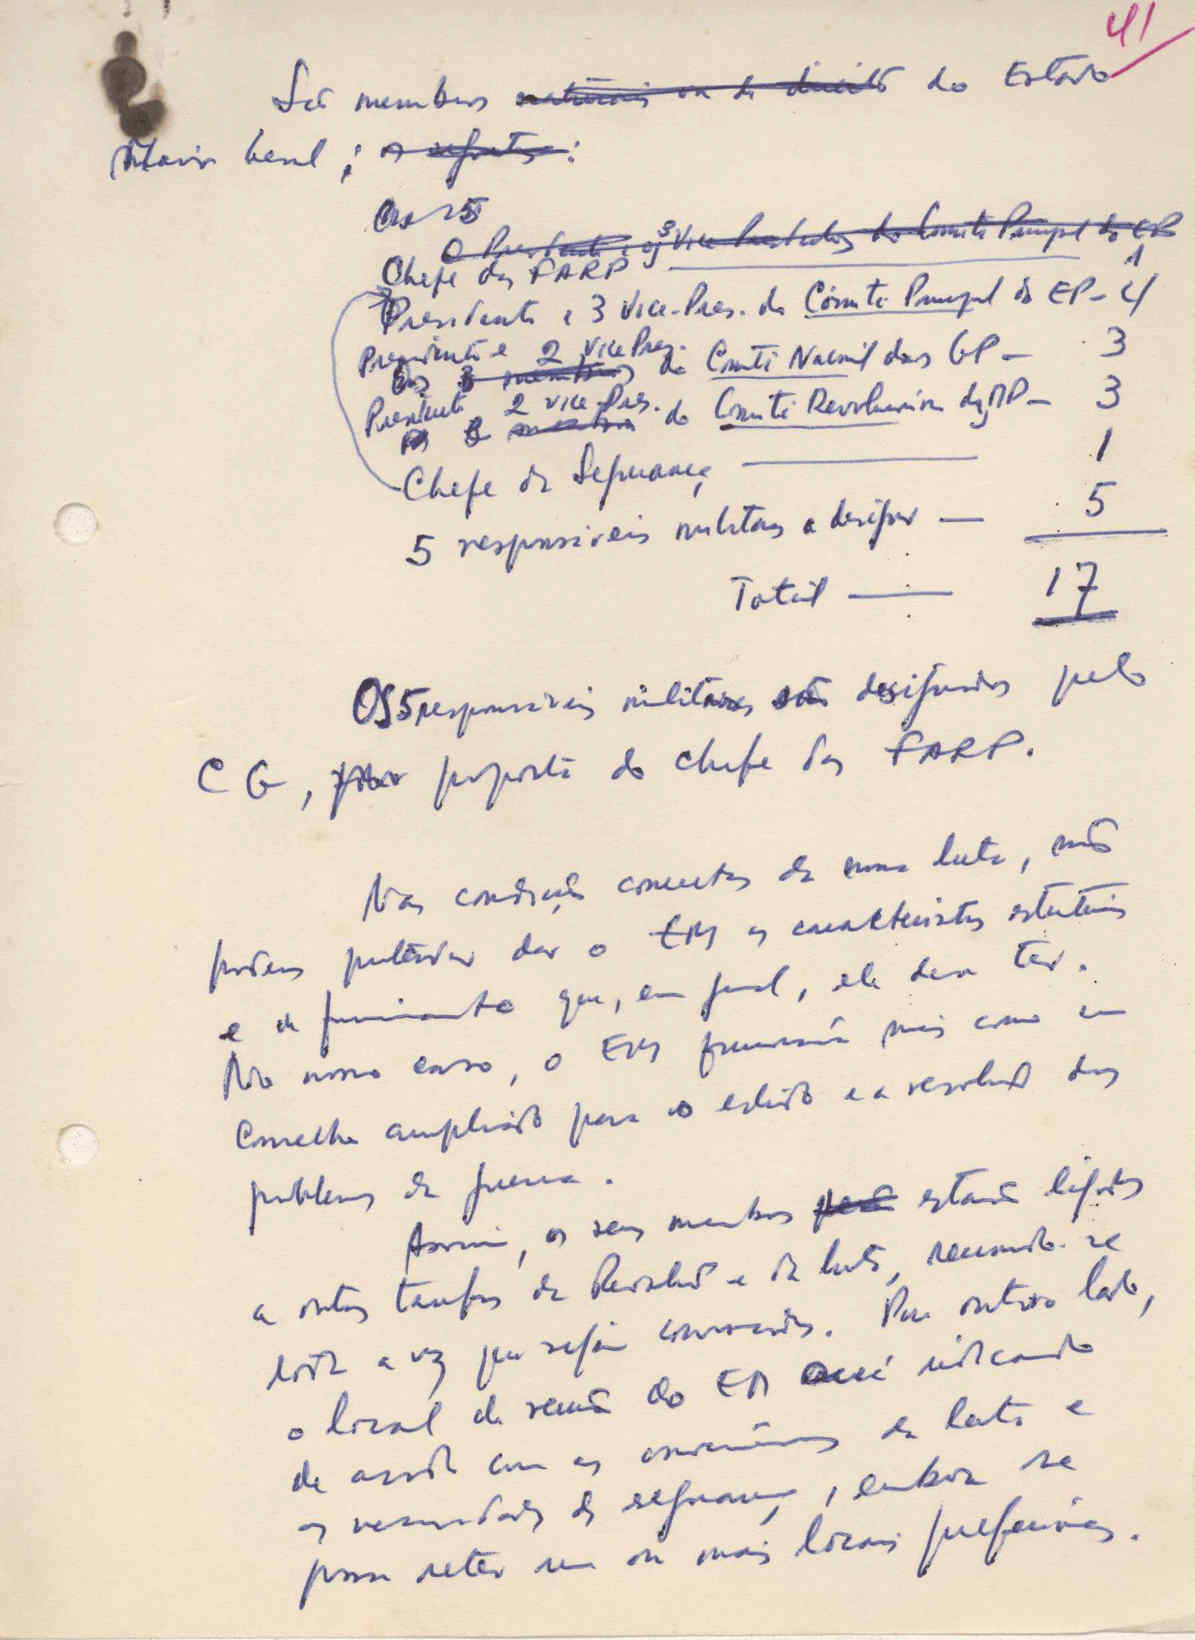 41
São membros naturais ou de direito do Estado
Maior Geral; os seguintes:
O Presidente e os 3 Vice-Presidentes do Comité Principal do EP
Chefe das FARP 1
Presidente e 3 Vice-Pres. do Comité Principal do EP - 4
Presidente e 2 Vice Pres.
Os 3 membros do Comité Nacional das GP - 3
Presidente 2 vice-Pres.
Os 3 membros do Comité Revolucionário das MP - 3
Chefe da Segurança 1
5 responsáveis militares a designar - 5
Total 17
Os 5 responsáveis militares são designados pelo
CG, proposta do chefe das FARP.
Nas condições concretas da nossa luta, não
podemos pretender dar o EM as características estruturais
e de funcionamento que, em geral, ele deve ter.
No nosso caso, o EM funcionará mais como um
Conselho ampliado para o estudo e a resolução dos
problemas da guerra.
Assim, os seus membros estarão ligados
a outras tarefas da Revolução e da luta, reunindo-se
toda a vez que sejam convocados. Por outro lado,
o local de reunião do EM será indicado
de acordo com as conveniências da luta e
as necessidades de segurança, embora se
possa reter um ou mais locais preferíveis.